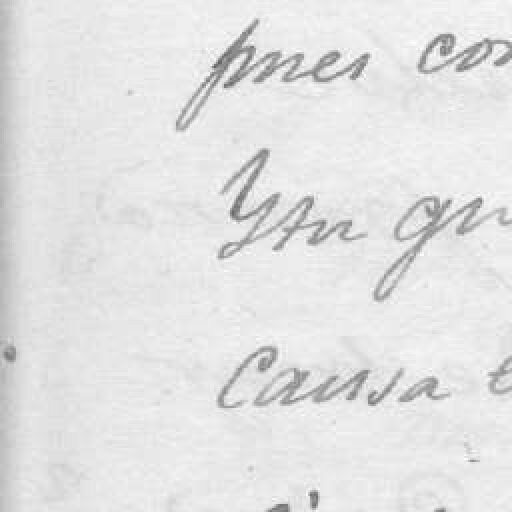 pues con
Ytu gu
Causa e